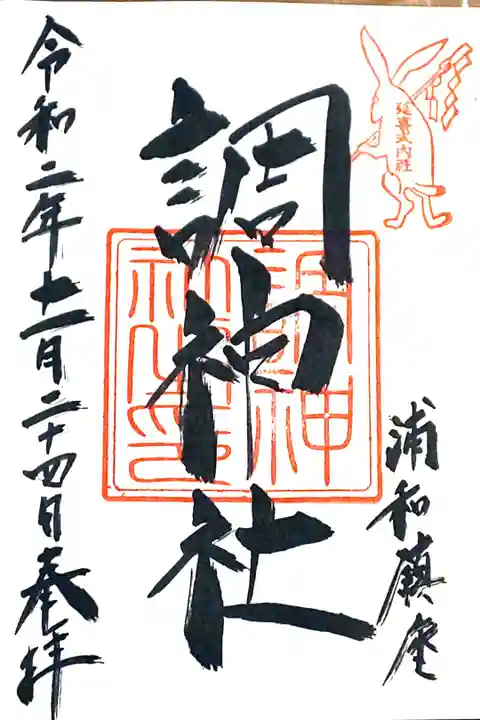 延喜式内社
浦和鎮座
調神社
調神
社之印
令和二年十一月二十四日奉拝